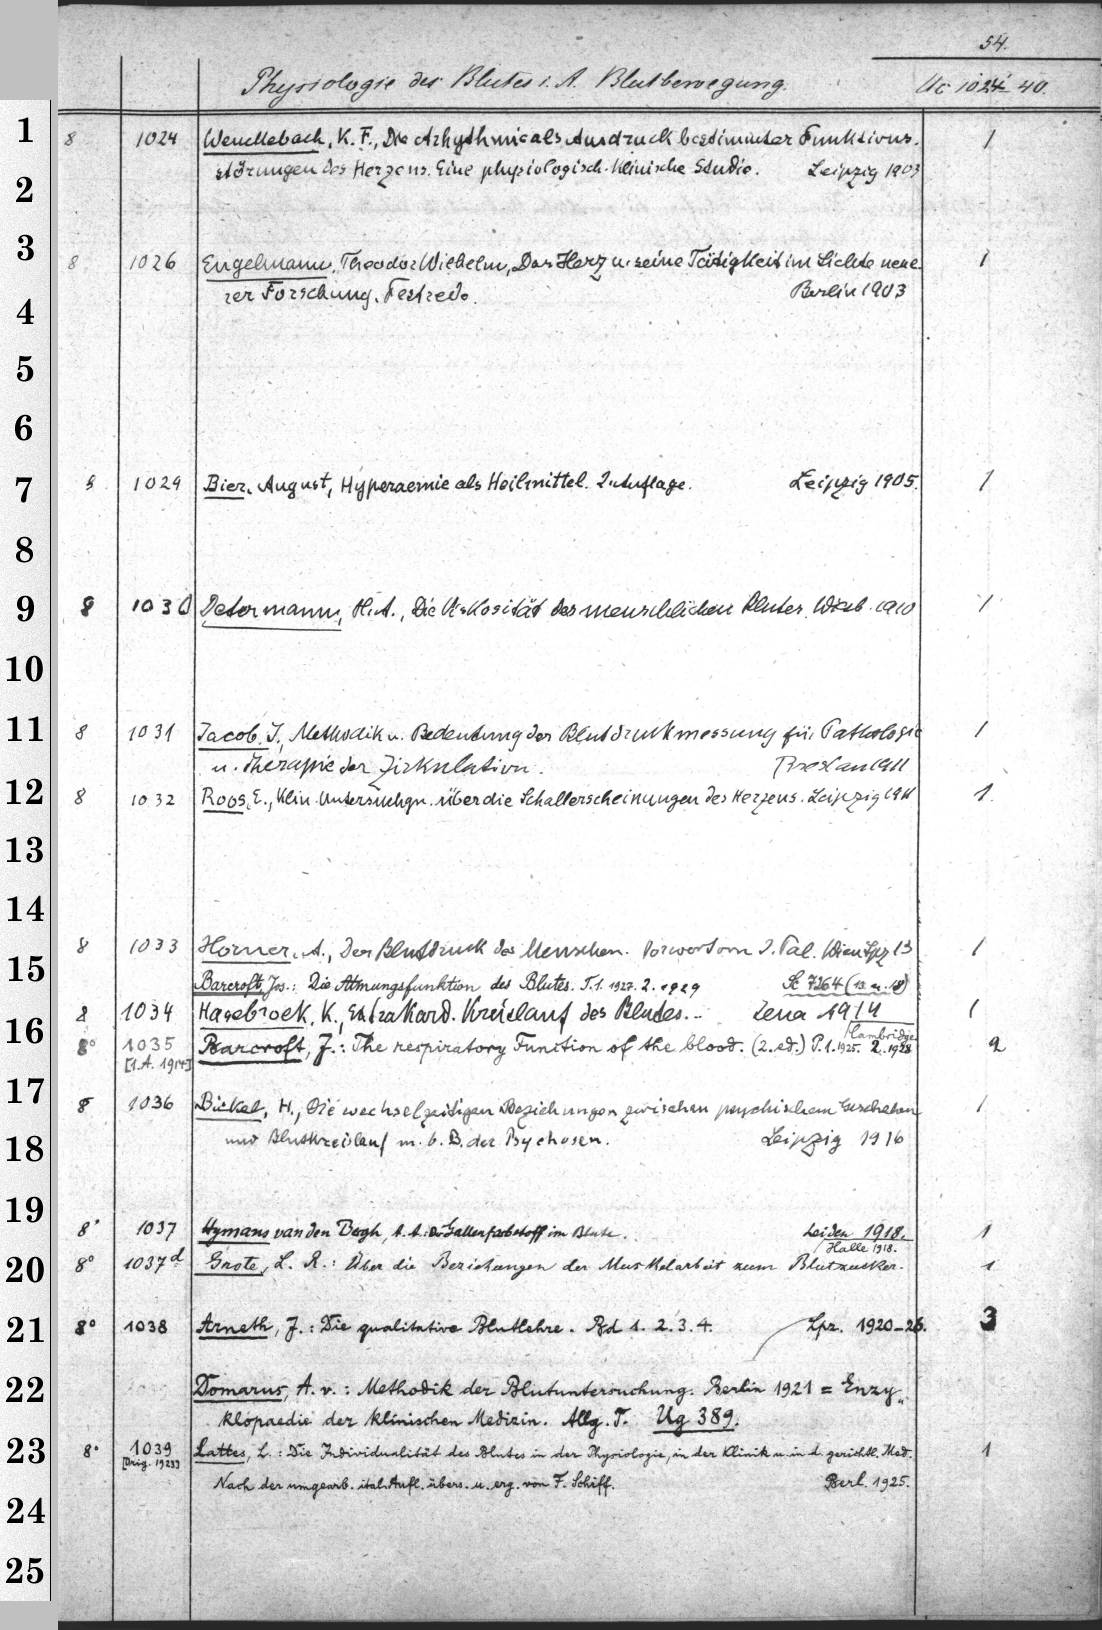 54.
Physiologie des Blutes i. A. Blutbewegung. Uc 1024-40.
1 8 1024 Wenckebach, K. F., Die Arhythmie als Ausdruck bestimmter Funktions- 1
2 störungen des Herzens. Eine physiologisch-klinische Studie. Leipzig 1903
3 8 1026 Engelmann, Theodor Wilhelm, Das Herz u. seine Tätigkeit im Lichte neue- 1
4 rer Forschung. Festrede. Berlin 1903
5
6
7 8 1029 Bier, August, Hyperaemie als Heilmittel. 2. Auflage. Leipzig 1905. 1
8
9 8 1030 Determann, H. A., Die Viskosität des menschlichen Blutes. Wiesb. 1910 1
10
11 8 1031 Jacob, J., Methodik u. Bedeutung der Blutdruckmessung für Pathologie 1
u. Therapie der Zirkulation. Breslau 1911
12 8 1032 Roos, E., Klin. Untersuchgn. über die Schallerscheinungen des Herzens. Leipzig 1911 1.
13
14
8 1033 Horner, A., Der Blutdruck des Menschen. Vorwort von J. Pal. Wien Lpz 13 1
15 Barcroft, Jos.: Die Atmungsfunktion des Blutes. T. 1. 1927. 2. 1929 Sc 7264 (13 u. 18)
8 1034 Hasebroek, K., Extrakard. Kreislauf des Blutes... Jena 1914 1
16 8° 1035 Barcroft, J.: The respiratory Function of the blood. (2. ed.) P. 1. 1925. 2. 1928 Cambridge 2
[1. A. 1914]
17 8 1036 Bickel, H., Die wechselseitigen Beziehungen zwischen psychischem Geschehen 1
18 und Blutkreislauf m. b. B. der Psychosen. Leipzig 1916
19 8° 1037 Hymans van den Bergh, A. A.: Der Gallenfarbstoff im Blute. Leiden 1918. 1
Halle 1918.
20 8° 1037d Grote, L. R.: Über die Beziehungen der Muskelarbeit zum Blutzucker. 1
21 8° 1038 Arneth, J.: Die qualitative Blutlehre. Bd 1. 2. 3. 4. Lpz. 1920-26. 3
22 Domarus, A. v.: Methodik der Blutuntersuchung. Berlin 1921 = Enzy-
klopaedie der klinischen Medizin. Allg. T. Ug 389.
23 8° 1039 Lattes, L.: Die Individualität des Blutes in der Physiologie, in der Klinik u. in d. gerichtl. Med. 1
[Orig. 1923]
Nach der umgearb. ital. Aufl. übers. u. erg. von F. Schiff. Berl. 1925.
24
25